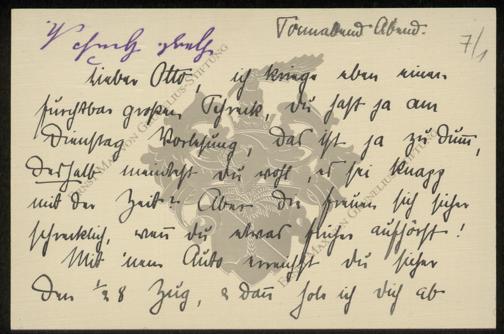 Sonnabend Abend.
7/1
Lieber Otto, ich kriege eben einen
furchtbar großen Schreck, Du hast ja am
Dienstag Vorlesung, das ist ja zu dumm,
deshalb meintest Du wohl, es sei knapp
mit der Zeit? Aber die freuen sich sicher
schrecklich, wenn du etwas früher aufhörst!
Mit 'nem Auto erreichst du sicher
den ½ 8 Zug, & dann hole ich Dich ab